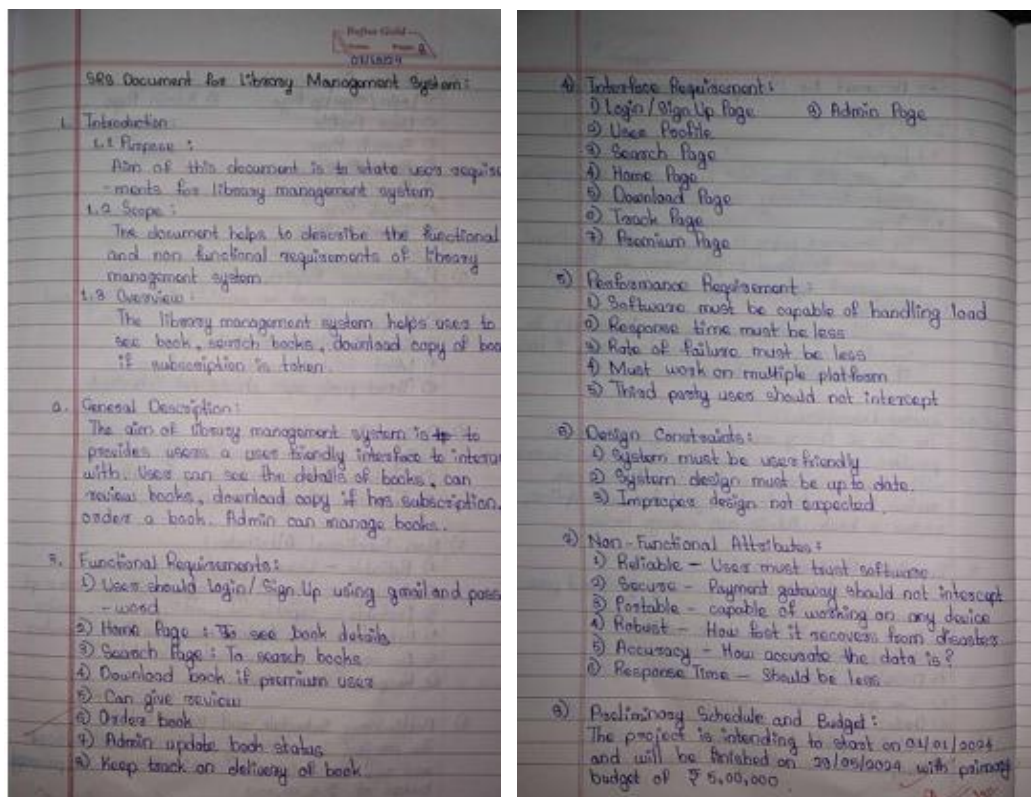 SRS Document for Library Management System:
1. Introduction:
1.1 Purpose:
Aim of this document is to state user require
-ments for library management system
1.2 Scope:
The document helps to describe the functional
and non functional requirements of library
management system
1.3 Overview:
The library management system helps user to
see book, search books, download copy of boo
if subscription is taken.
2. General Description:
The aim of library management system is to
provides users a user friendly interface to intera
with. User can see the details of books, can
review books, download copy if has subscription,
order a book. Admin can manage books.
3. Functional Requirements:
1) User should Login/Sign Up using gmail and pass
-word
2) Home Page: To see book details
3) Search Page: To search books
4) Download book if premium user
5) Can give review
6) Order book
7) Admin update book status
8) Keep track on delivery of book
4) Interface Requirement:
1) Login/Sign Up Page 8) Admin Page
2) User Profile
3) Search Page
4) Home Page
5) Download Page
6) Track Page
7) Premium Page
5) Performance Requirement:
1) Software must be capable of handling load
2) Response time must be less
3) Rate of failure must be less
4) Must work on multiple platform
5) Third party user should not intercept
6) Design Constraints:
1) System must be user friendly
2) System design must be up to date.
3) Improper design not expected.
7) Non-Functional Attributes:
1) Reliable - User must trust software.
2) Secure - Payment gateway should not intercept
3) Portable - capable of working on any device
4) Robust - How fast it recovers from disaster
5) Accuracy - How accurate the data is?
6) Response Time - Should be less.
8) Preliminary Schedule and Budget:
The project is intending to start on 01/01/2024
and will be finished on 29/05/2024 with primary
budget of ₹ 5,00,000.